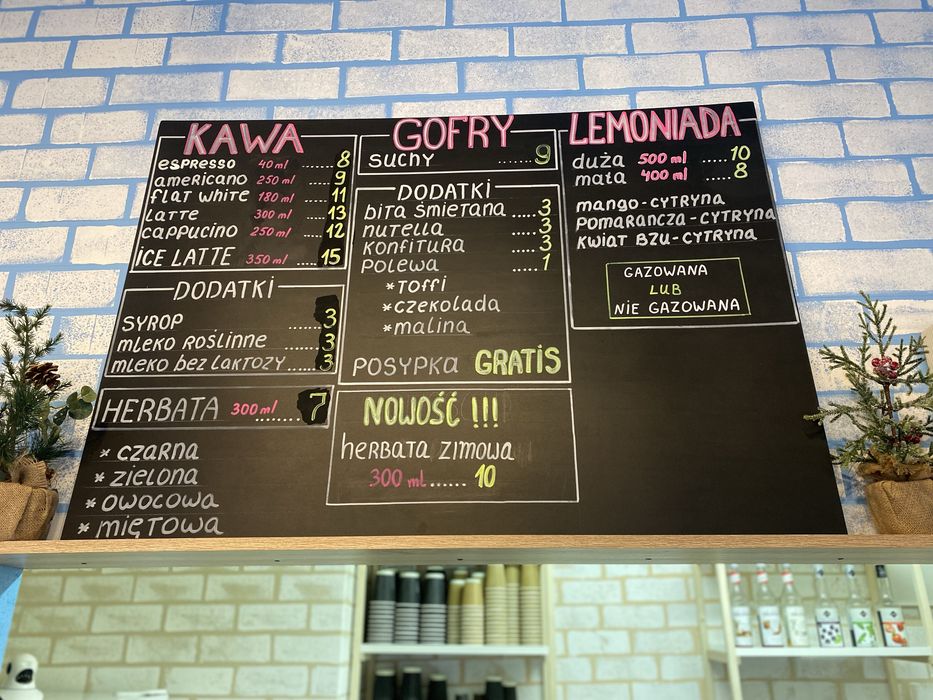 KAWA
espresso 40 ml ...... 8
americano 250 ml ...... 9
flat white 180 ml ..... 11
latte 300 ml ..... 13
cappucino 250 ml ..... 12
ICE LATTE 350 ml ..... 15
DODATKI
SYROP ....... 3
mleko roślinne ....... 3
mleko bez laktozy ...... 3
HERBATA 300 ml ........ 7
* czarna
* zielona
* owocowa
* miętowa
GOFRY
suchy ....... 9
DODATKI
bita śmietana ..... 3
nutella ..... 3
konfitura ..... 3
polewa ..... 1
* toffi
* czekolada
* malina
POSYPKA GRATIS
NOWOŚĆ !!!
herbata zimowa
300 ml ...... 10
LEMONIADA
duża 500 ml ..... 10
mała 400 ml ..... 8
mango-cytryna
pomarańcza-cytryna
kwiat bzu-cytryna
GAZOWANA
LUB
NIE GAZOWANA